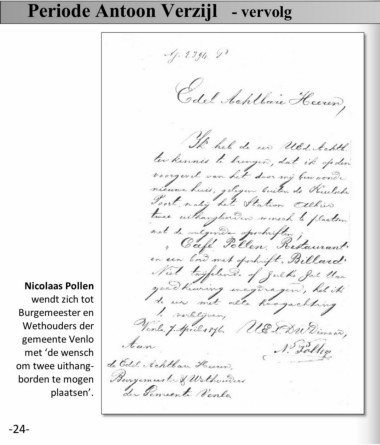 Periode Antoon Verzijl - vervolg
Edel Achtbare Heeren,
Ik heb de eer UEd. Achtb.
ter kennis te brengen, dat ik op den
voorgevel van het door mij bewoonde
nieuwe huis, gelegen buiten de
Poort nabij het Station alhier
twee uithangborden wensch te plaatsen
met de volgende opschriften:
"Café Pollen, Restaurant
en een bord met opschrift "Billard"
goedkeuring wegdragen, heb ik
de eer met alle hoogachting
te verblijven,
Venlo 7 April 1876. U.E.D.W. Dienaar,
N. Pollen
Aan
de Edel Achtbare Heeren,
Burgemeester & Wethouders
der Gemeente Venlo
Nicolaas Pollen
wendt zich tot
Burgemeester en
Wethouders der
gemeente Venlo
met ‘de wensch
om twee uithang-
borden te mogen
plaatsen’.
-24-